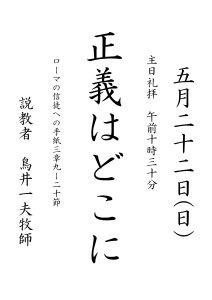 五月二十二日(日)
主日礼拝　午前十時三十分
正義はどこに
ローマの信徒への手紙三章九ー二十節
説教者　鳥井一夫牧師